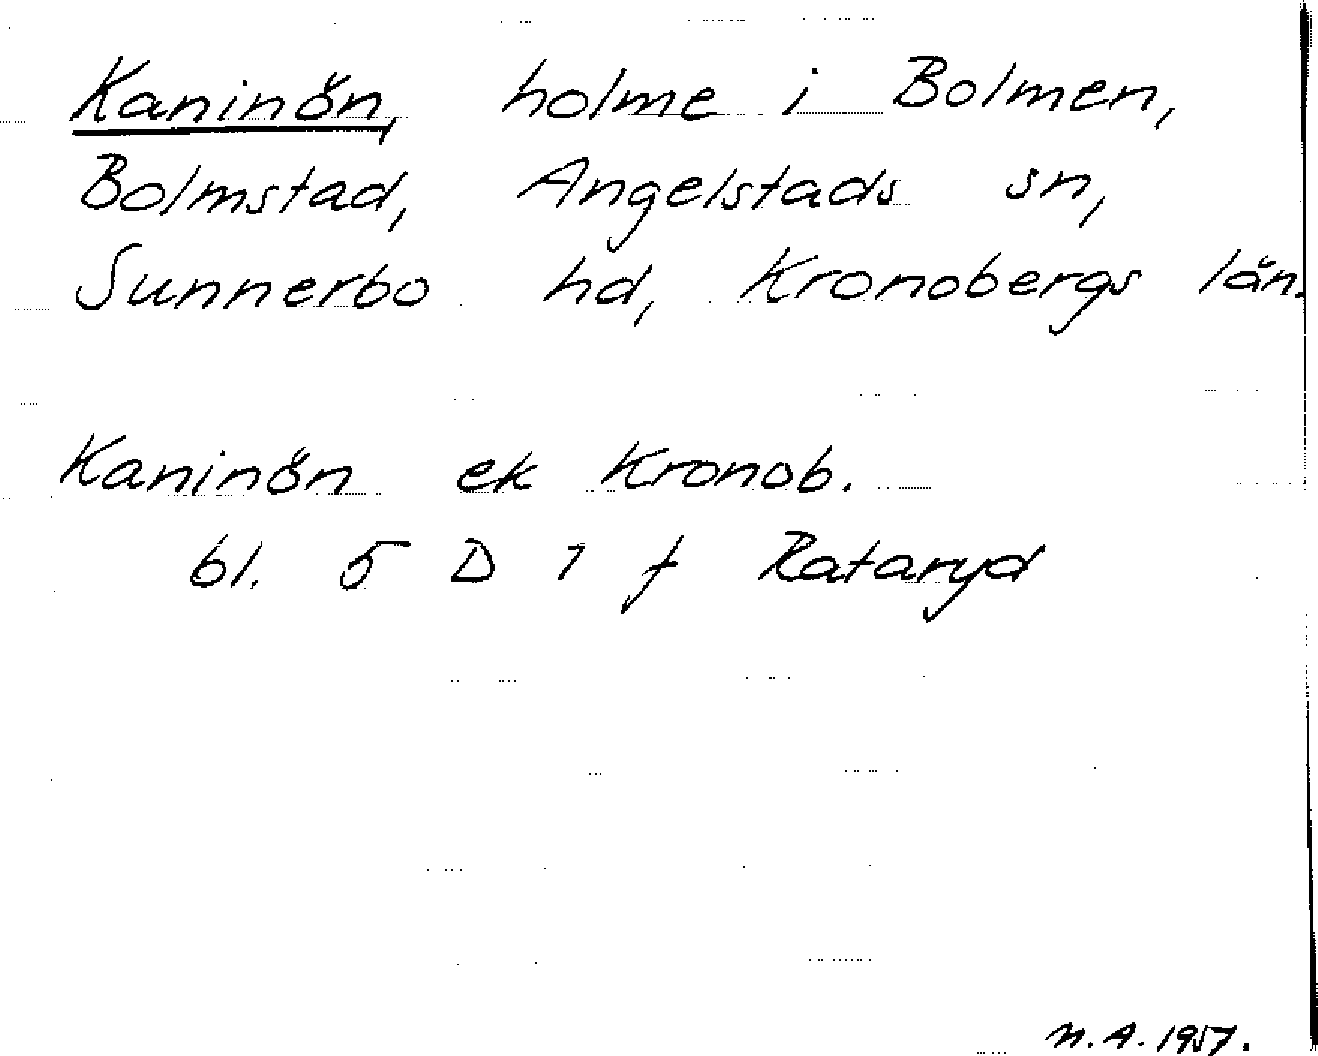 Kaninön, holme i Bolmen,
Bolmstad, Angelstads sn,
Sunnerbo hd, Kronobergs län.
Kaninön ek Kronob.
bl. 5 D 7 f Rataryd
N.A. 1957.